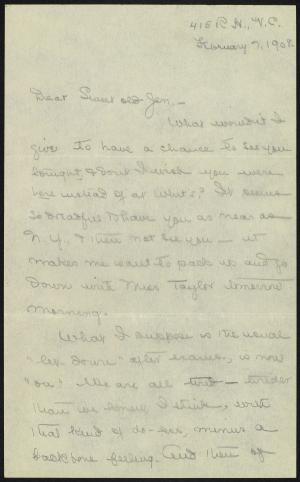 415 R.H., V.C.
February 7, 1908.
Dear Sweet old Jen, -
What wouldn't I
give to have a chance to see you
tonight, & don't I wish you were
here instead of at Whit's? It seems
so dreadful to have you as near as
N.Y., & then not see you - it
makes me want to pack up and go
down with Miss Taylor tomorrow
morning.
What I suppose is the usual
"let-down" after exams, is now
"on." We are all tired - tireder
than we know, I think, with
that kind of do-less, minus a
backbone feeling. And then of